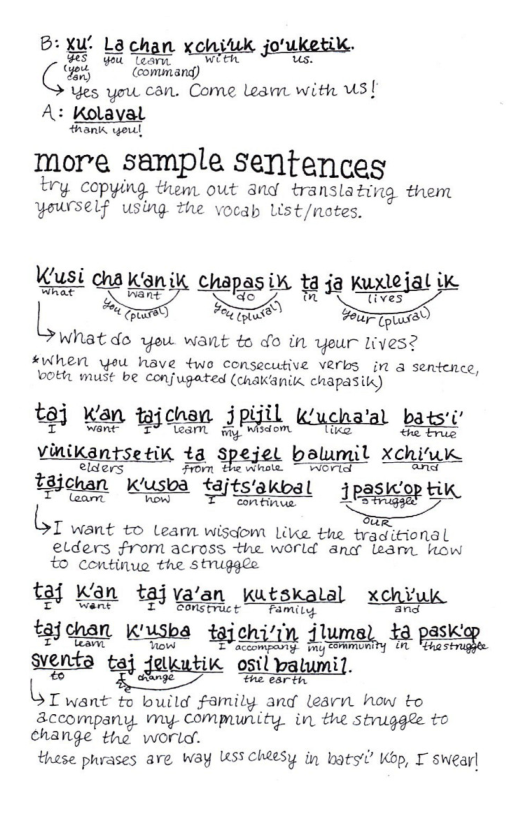 B: xu'. La chan xchi'uk jo'uketik.
yes you learn with us.
(you can) (command)
↳ yes you can. Come learn with us!
A: Kolaval
thank you!
more sample sentences
try copying them out and translating them
yourself using the vocab list/notes.
K'usi cha k'anik chapasik ta ja kuxlejal ik
what want do in lives
you (plural) you (plural) your (plural)
↳ what do you want to do in your lives?
*when you have two consecutive verbs in a sentence,
both must be conjugated (chak'anik chapasik)
taj k'an tajchan jpijil k'ucha'al bats'i'
I want I learn my wisdom like the true
vinikantsetik ta spejel balumil xchi'uk
elders from the whole world and
tajchan k'usba tajts'akbal jpask'optik
I learn how I continue struggle
our
↳ I want to learn wisdom like the traditional
elders from across the world and learn how
to continue the struggle
taj k'an taj va'an kutskalal xchi'uk
I want I construct family and
taj chan k'usba tajchi'in jlumal ta pask'op
I learn how I accompany my community in the struggle
sventa taj jelkutik osil balumil.
to I change the earth
↳ I want to build family and learn how to
accompany my community in the struggle to
change the world.
these phrases are way less cheesy in bats'i' kop, I swear!